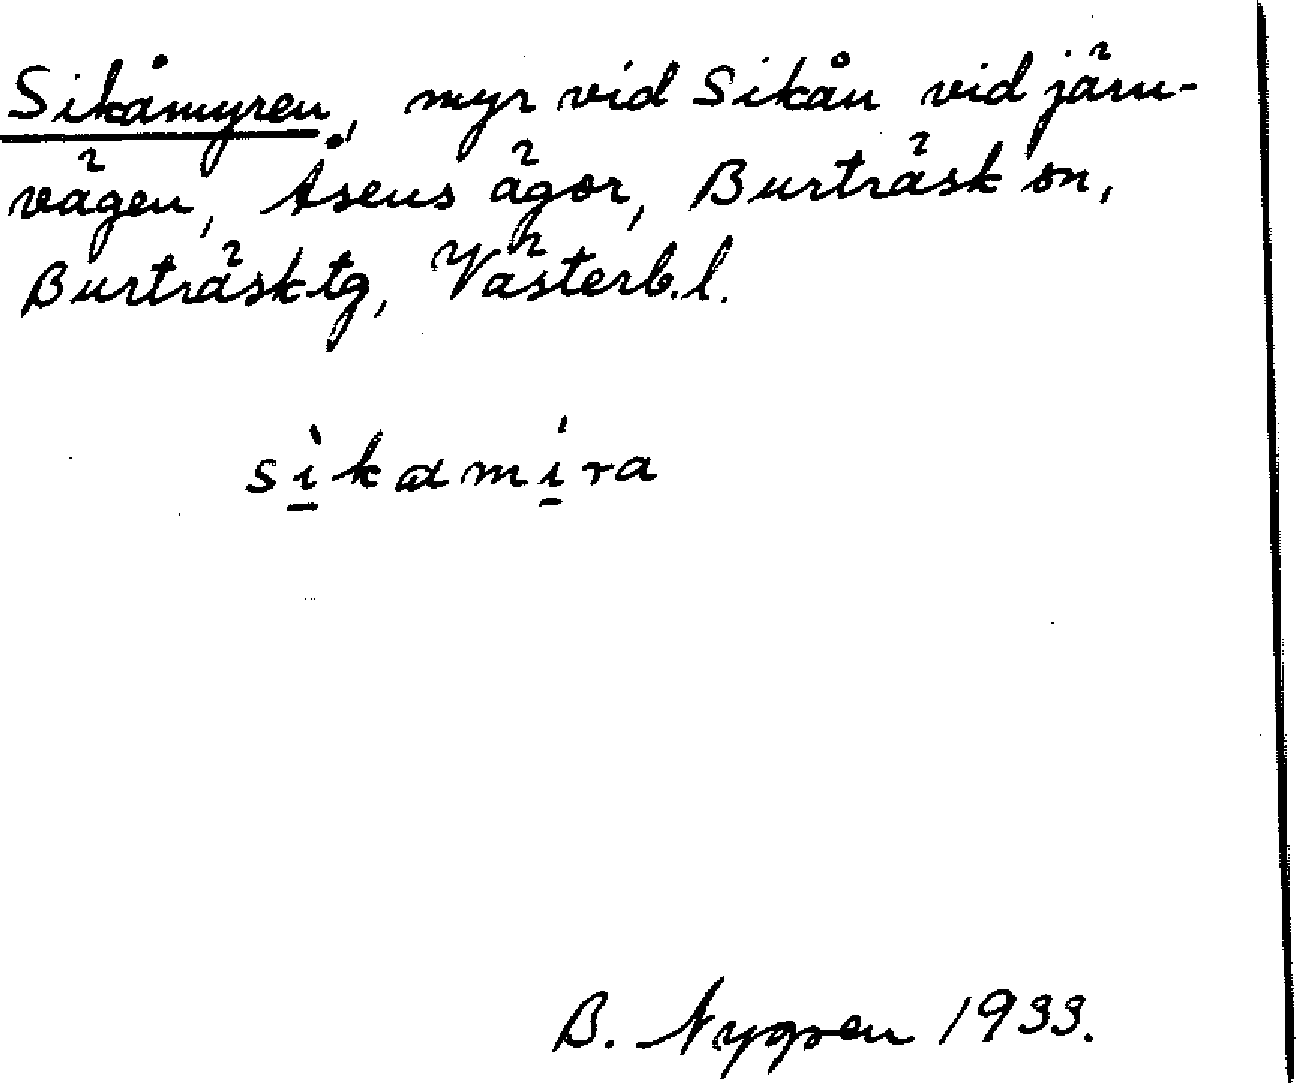 Sikåmyren, myr vid Sikån vid järn-
vägen, Åsens ägor, Burträsk sn,
Burträsk tg, Västerb. l.
sìkamíra
B. Nygren 1933.